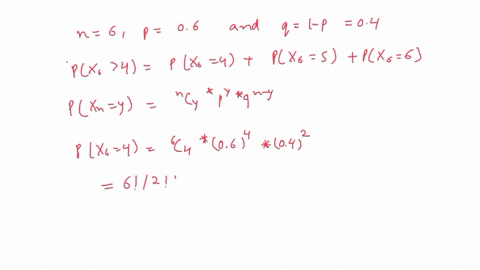 n=6, p= 0.6 and q=1-p =0.4
P(X₆>4) = P(X₆=4) + P(X₆=5) + P(X₆=6)
P(Xₙ=y) = ⁿCy * pʸ * qⁿ⁻ʸ
P(X₆=4) = ⁶C₄ *(0.6)⁴ *(0.4)²
= 6!/2!'